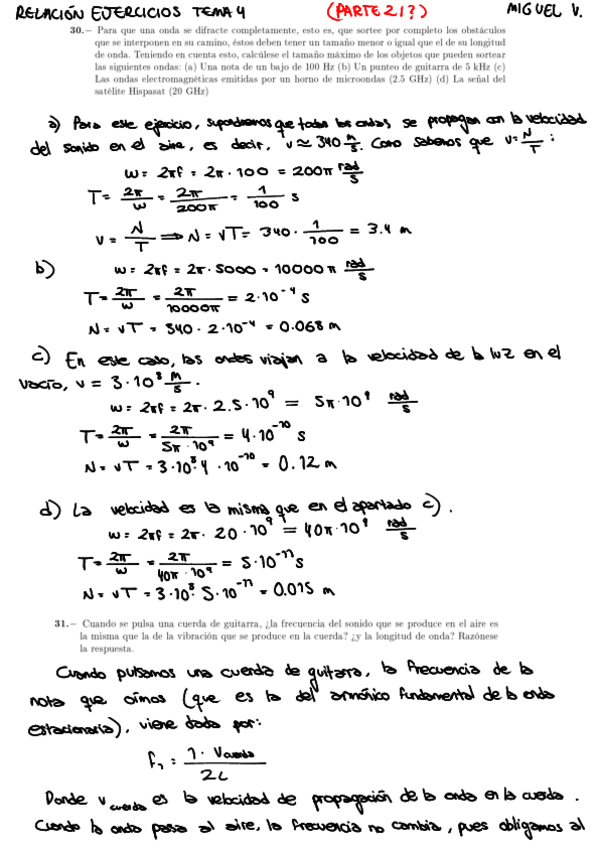 RELACIÓN EJERCICIOS TEMA 4 (PARTE 2!?) MIGUEL V.
30.– Para que una onda se difracte completamente, esto es, que sortee por completo los obstáculos
que se interponen en su camino, éstos deben tener un tamaño menor o igual que el de su longitud
de onda. Teniendo en cuenta esto, calcúlese el tamaño máximo de los objetos que pueden sortear
las siguientes ondas: (a) Una nota de un bajo de 100 Hz (b) Un punteo de guitarra de 5 kHz (c)
Las ondas electromagnéticas emitidas por un horno de microondas (2.5 GHz) (d) La señal del
satélite Hispasat (20 GHz)
a) Para este ejercicio, supondremos que todas las ondas se propagan con la velocidad
del sonido en el aire, es decir, v ≃ 340 m/s. Como sabemos que v = λ/T :
ω = 2πf = 2π · 100 = 200π rad/s
T = 2π/ω = 2π/200π = 1/100 s
v = λ/T ⟹ λ = vT = 340 · 1/100 = 3.4 m
b) ω = 2πf = 2π · 5000 = 10000π rad/s
T = 2π/ω = 2π/10000π = 2·10⁻⁴ s
λ = vT = 340 · 2·10⁻⁴ = 0.068 m
c) En este caso, las ondas viajan a la velocidad de la luz en el
vacío, v = 3·10⁸ m/s.
ω = 2πf = 2π · 2.5 · 10⁹ = 5π·10⁹ rad/s
T = 2π/ω = 2π/5π · 10⁹ = 4·10⁻¹⁰ s
λ = vT = 3·10⁸·4 · 10⁻¹⁰ = 0.12 m
d) La velocidad es la misma que en el apartado c).
ω = 2πf = 2π · 20 · 10⁹ = 40π·10⁹ rad/s
T = 2π/ω = 2π/40π · 10⁹ = 5·10⁻¹¹ s
λ = vT = 3·10⁸·5·10⁻¹¹ = 0.015 m
31.– Cuando se pulsa una cuerda de guitarra, ¿la frecuencia del sonido que se produce en el aire es
la misma que la de la vibración que se produce en la cuerda? ¿y la longitud de onda? Razónese
la respuesta.
Cuando pulsamos una cuerda de guitarra, la frecuencia de la
nota que oímos (que es la del armónico fundamental de la onda
estacionaria), viene dada por:
f₁ = 1 · v cuerda / 2L
Donde v cuerda es la velocidad de propagación de la onda en la cuerda.
Cuando la onda pasa al aire, la frecuencia no cambia, pues obligamos al